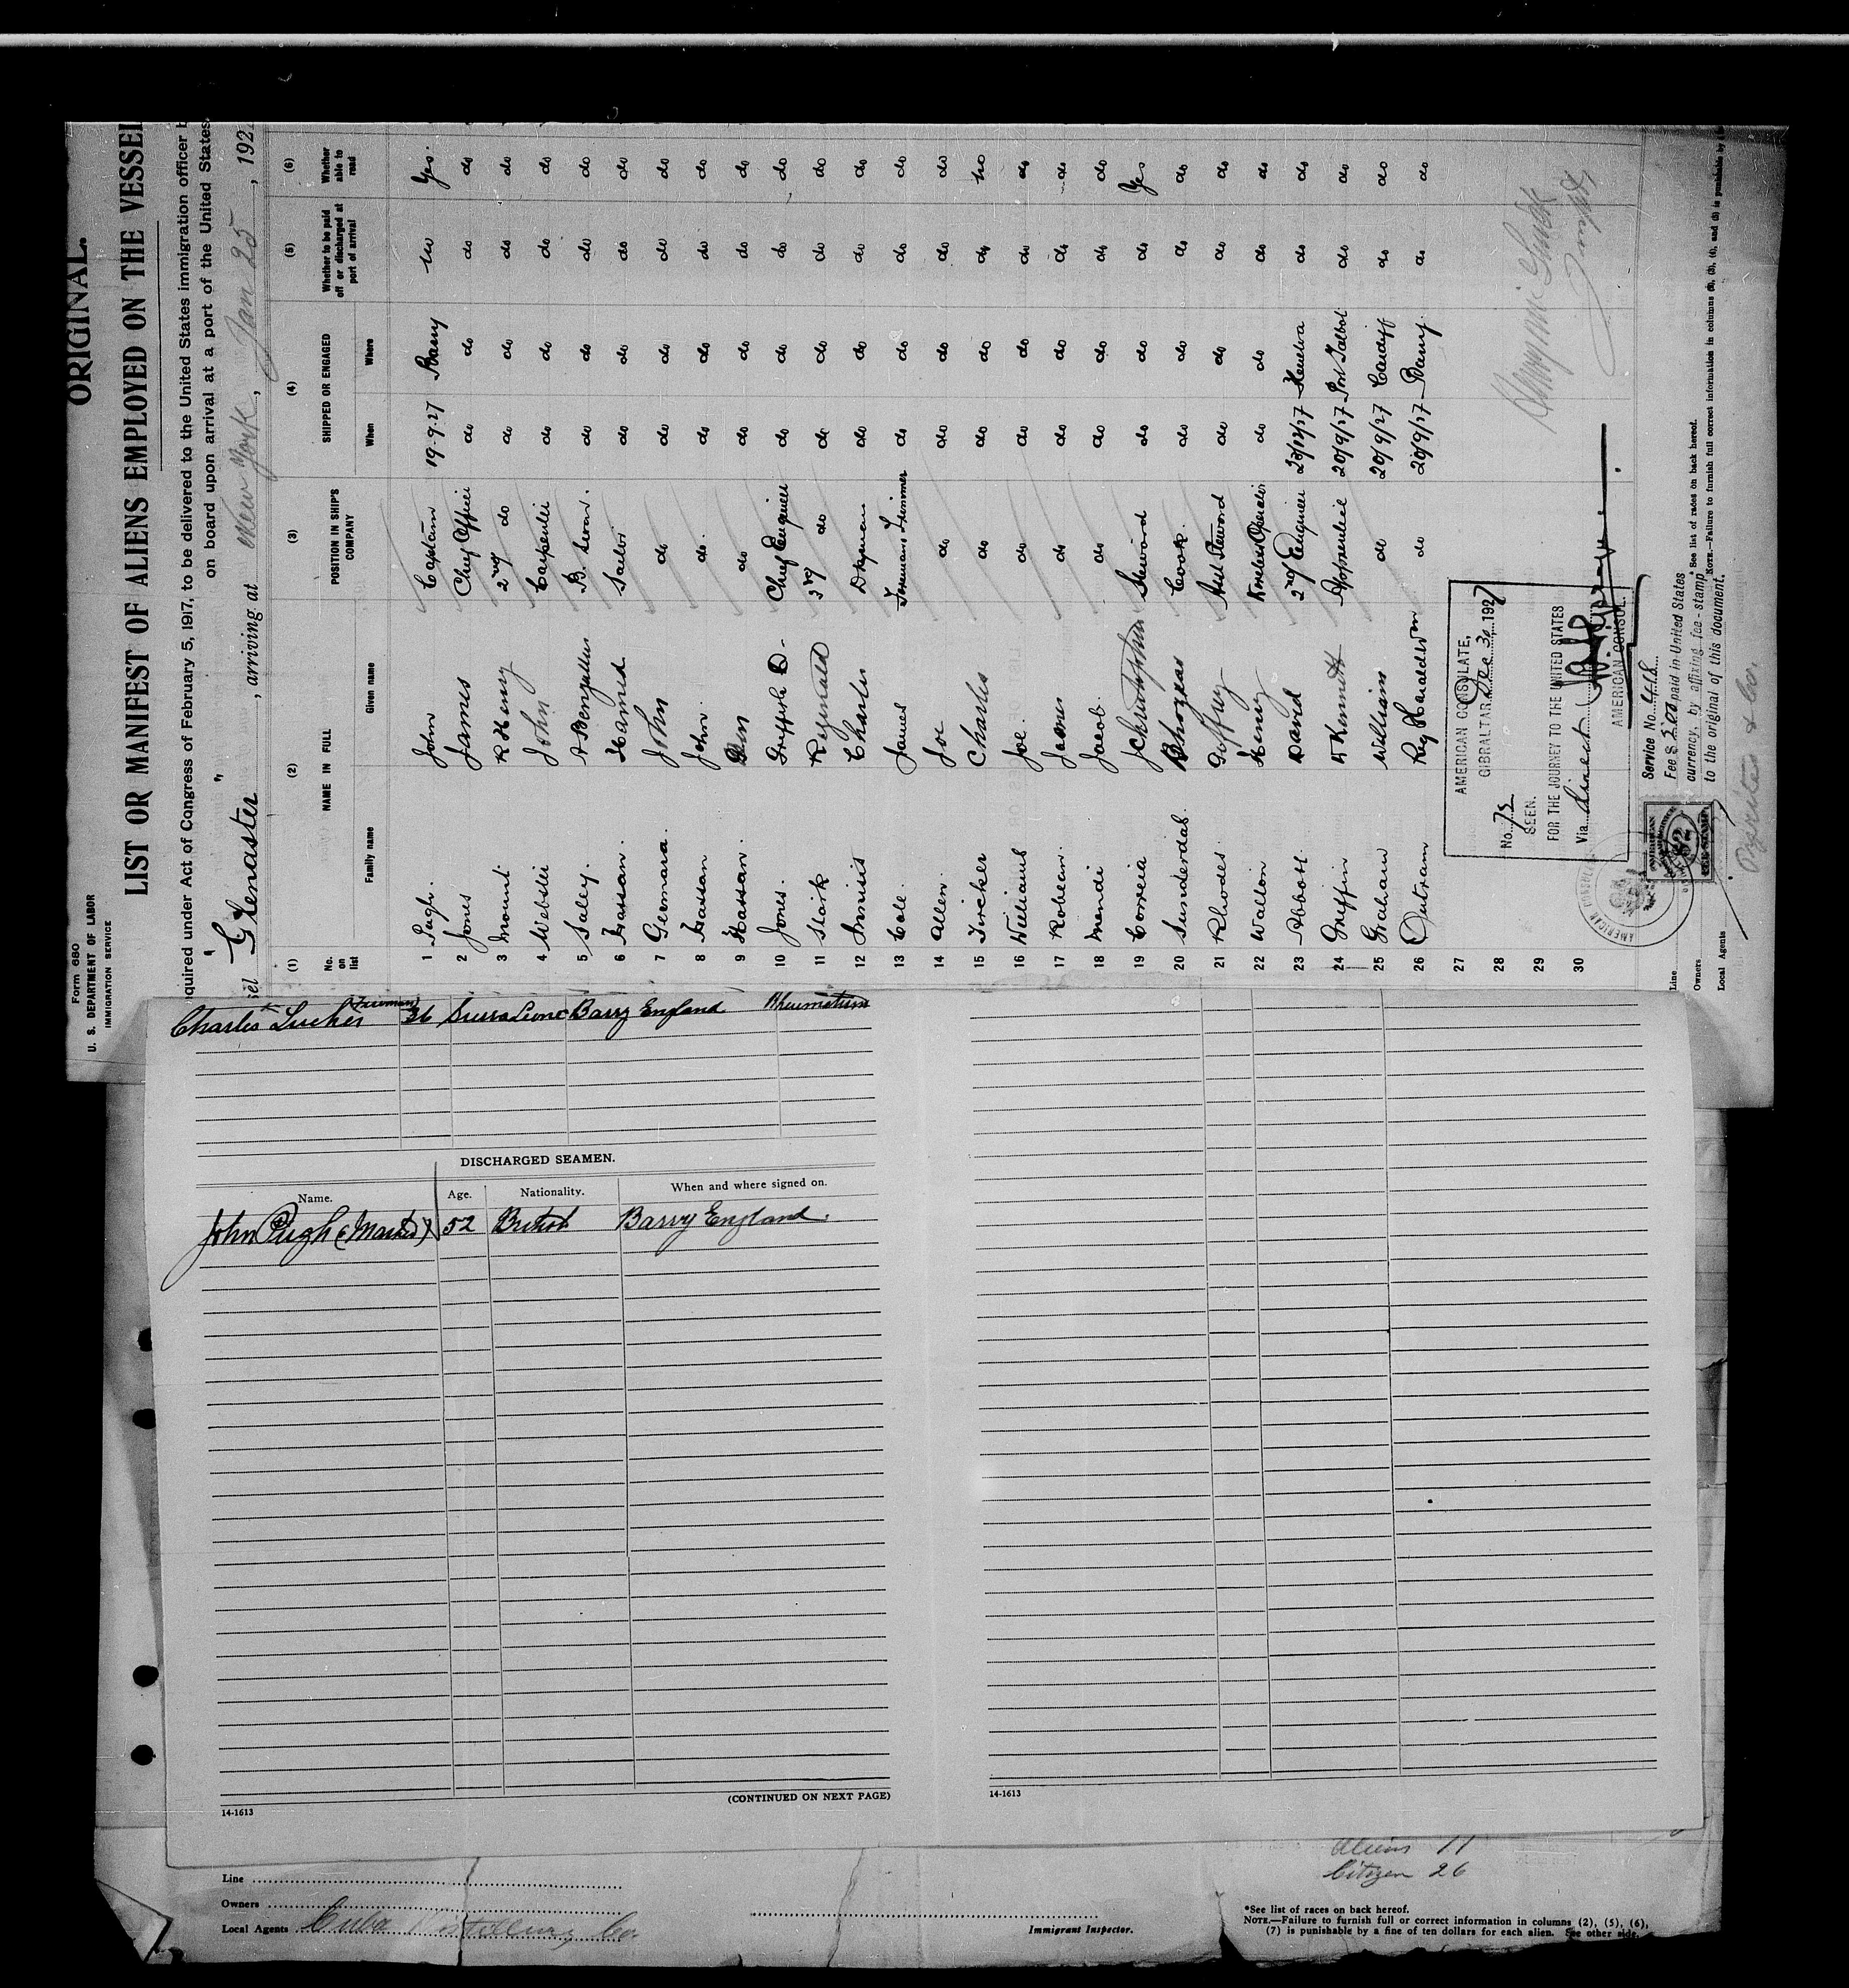 Form 680
U. S. DEPARTMENT OF LABOR
IMMIGRATION SERVICE
ORIGINAL.
LIST OR MANIFEST OF ALIENS EMPLOYED ON THE VESSEL
equired under Act of Congress of February 5, 1917, to be delivered to the United States immigration officer b
on board upon arrival at a port of the United States
sel "Glenaster", arriving at New York, Jan 25, 192
(1) (2) (3) (4) (5) (6)
No. on list NAME IN FULL POSITION IN SHIP'S COMPANY SHIPPED OR ENGAGED Whether to be paid off or discharged at port of arrival Whether able to read
Family name Given name When Where
1 Pugh. John Captain 19.9.27 Barry no Yes.
2 Jones James Chief Officer do do do do
3 Mount R Henry 2nd do do do do do
4 Webster John Carpenter do do do do
5 Salley. do do do do
6 Hassan. Hamed Sailor do do do do
7 John do do do do do
8 Hassan John. do. do do do do
9 Hassan. do do do do do
10 Jones. Griffith D. Chief Engineer do do do do
11 Stark Reginald 3rd do do do do do
12 Charles Dkeyman do do do do
13 Cole. James Firemans Trimmer do do do do
14 Allen. Joe do do do do do
15 Tucker Charles do do do do no
16 Williams Joe. do do do do do
17 James do do do do do
18 Mendi Jacob. do do do do do
19 Correia Steward do do do Yes
20 Cook. do do do do
21 Rhodes. Goffrey Asst Steward do do do do
22 Walton Henery Wireless Operator do do do do
23 Abbott. David 2nd Engineer 23/12/27 Huelva do do
24 Griffin W Kenneth Apprentice 20/9/27 Port Talbot do do
25 Graham William do 20/9/27 Cardiff do do
26 Outram Reg Haraldson do 20/9/27 Barry. do do
27
28
29
30
AMERICAN CONSULATE,
GIBRALTAR, Dec 30, 1927
No. 75
SEEN.
FOR THE JOURNEY TO THE UNITED STATES
Via Direct
AMERICAN CONSUL.
Service No. 418
Fee $ 2.00 paid in United States
currency, by affixing fee-stamp
to the original of this document.
Line
Owners
Local Agents
* See list of races on back hereof.
NOTE.—Failure to furnish full correct information in columns
Pyrites & Co.
Charles Tucker (Fireman) 36 Sierra Leone Barry England Rheumatism
DISCHARGED SEAMEN.
Name. Age. Nationality. When and where signed on.
John Pugh (Master) 52 British Barry England.
(CONTINUED ON NEXT PAGE)
14-1613
14-1613
Aliens 11
Citizen 26
Line
Owners
Local Agents Cuba Distilling Co.
Immigrant Inspector.
*See list of races on back hereof.
NOTE.—Failure to furnish full or correct information in columns (2), (5), (6),
(7) is punishable by a fine of ten dollars for each alien. See other side.